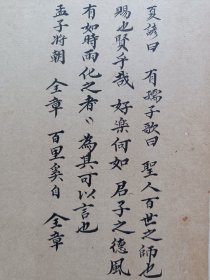 夏諺曰 有孺子歌曰 聖人百世之師也
賜也賢乎哉 好樂何如 君子之德風
有如時雨化之者〃 為其可以言也
孟子将朝 全章 百里奚自 全章